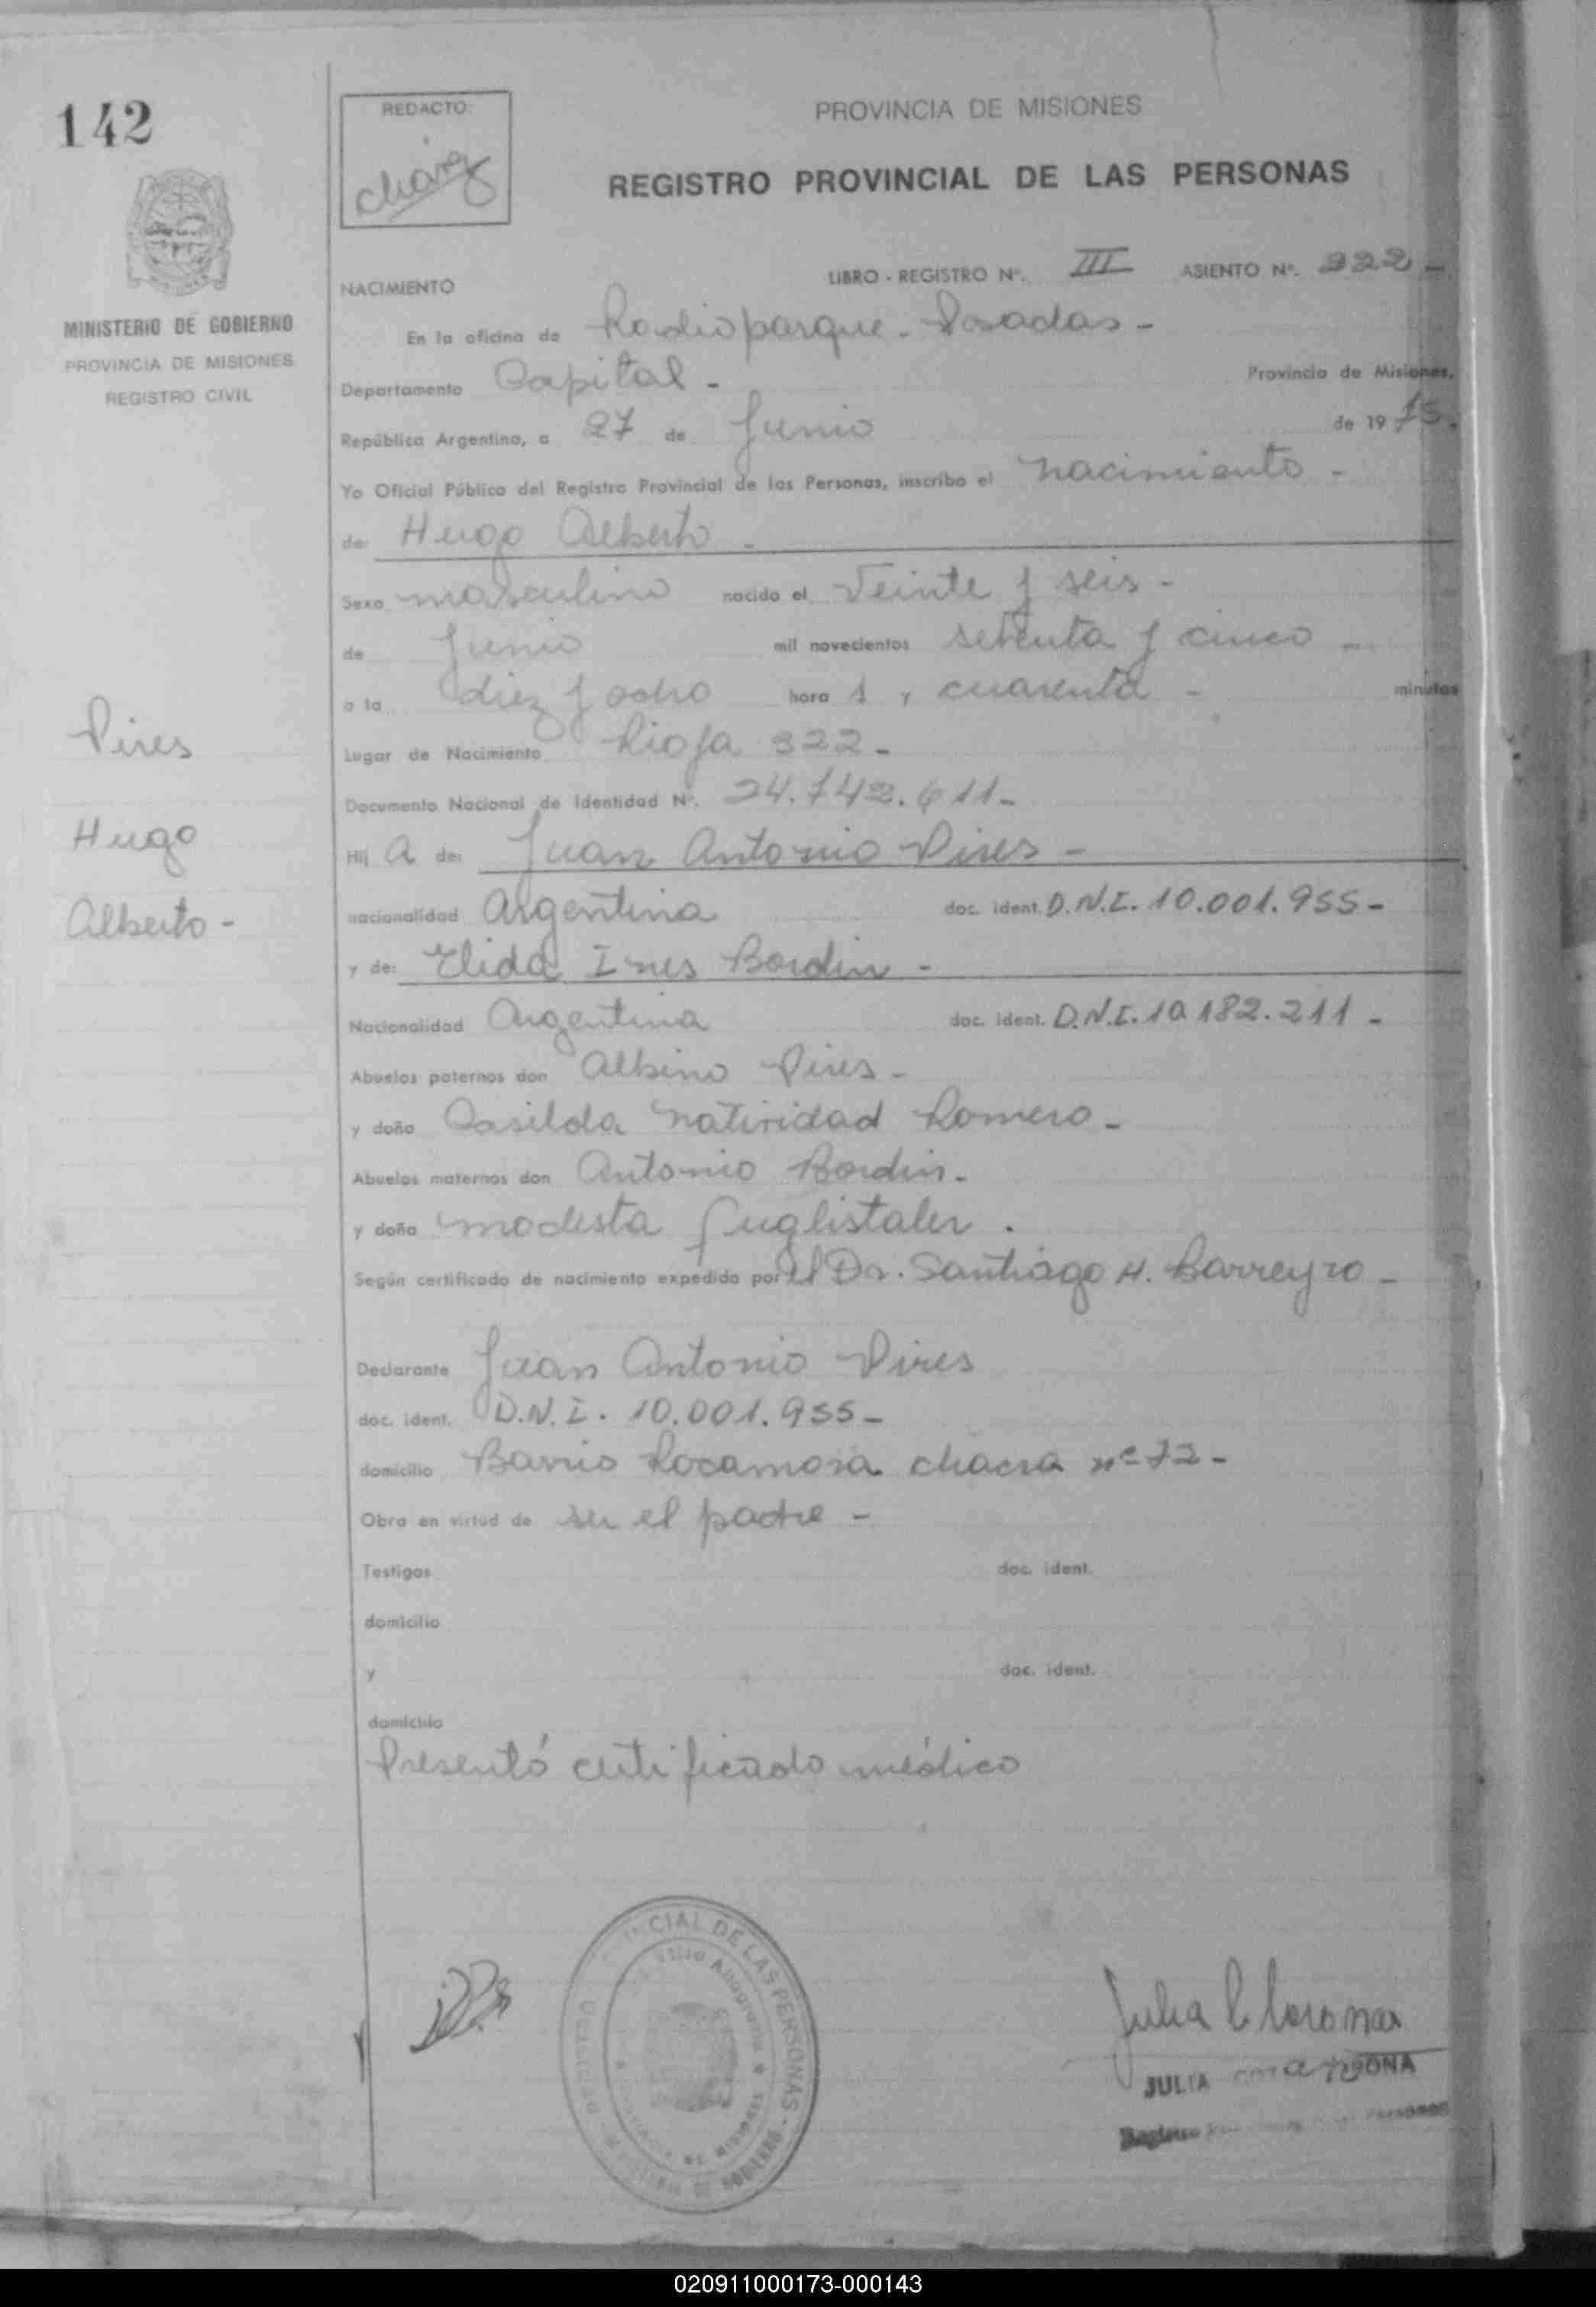 142
REDACTO:
chavez
PROVINCIA DE MISIONES
REGISTRO PROVINCIAL DE LAS PERSONAS
MINISTERIO DE GOBIERNO
PROVINCIA DE MISIONES
REGISTRO CIVIL
NACIMIENTO
LIBRO - REGISTRO Nº. III ASIENTO Nº. 922 -
En la oficina de Radioparque - Posadas -
Departamento Capital - Provincia de Misiones,
República Argentina, a 27 de Junio de 1975.
Yo Oficial Público del Registro Provincial de las Personas, inscribo el nacimiento -
de: Hugo Alberto -
Sexo masculino nacido el Veinte y seis -
de Junio mil novecientos setenta y cinco -
a la diez y ocho hora s y cuarenta - minutos
Lugar de Nacimiento Rioja 322 -
Documento Nacional de Identidad Nº. 24.742.611 -
Pires
Hugo
Alberto -
Hij A de: Juan Antonio Pires -
nacionalidad Argentina doc. ident. D.N.I. 10.001.955 -
y de: Elida Ines Bordin -
Nacionalidad Argentina doc. ident. D.N.I. 10.182.211 -
Abuelos paternos don Albino Pires -
y doña Casilda Natividad Romero -
Abuelos maternos don Antonio Bordin -
y doña Modesta Fuglistaler .
Según certificado de nacimiento expedido por el Dr. Santiago H. Barreyro -
Declarante Juan Antonio Pires
doc. ident. D.N.I. 10.001.955 -
domicilio Barrio Rocamora chacra nº 72 -
Obra en virtud de ser el padre -
Testigos doc. ident.
domicilio
y doc. ident.
domicilio
Presentó certificado médico
CIAL DE LAS PERSONAS
Julia C Corona
JULIA
Registro Personas
020911000173-000143